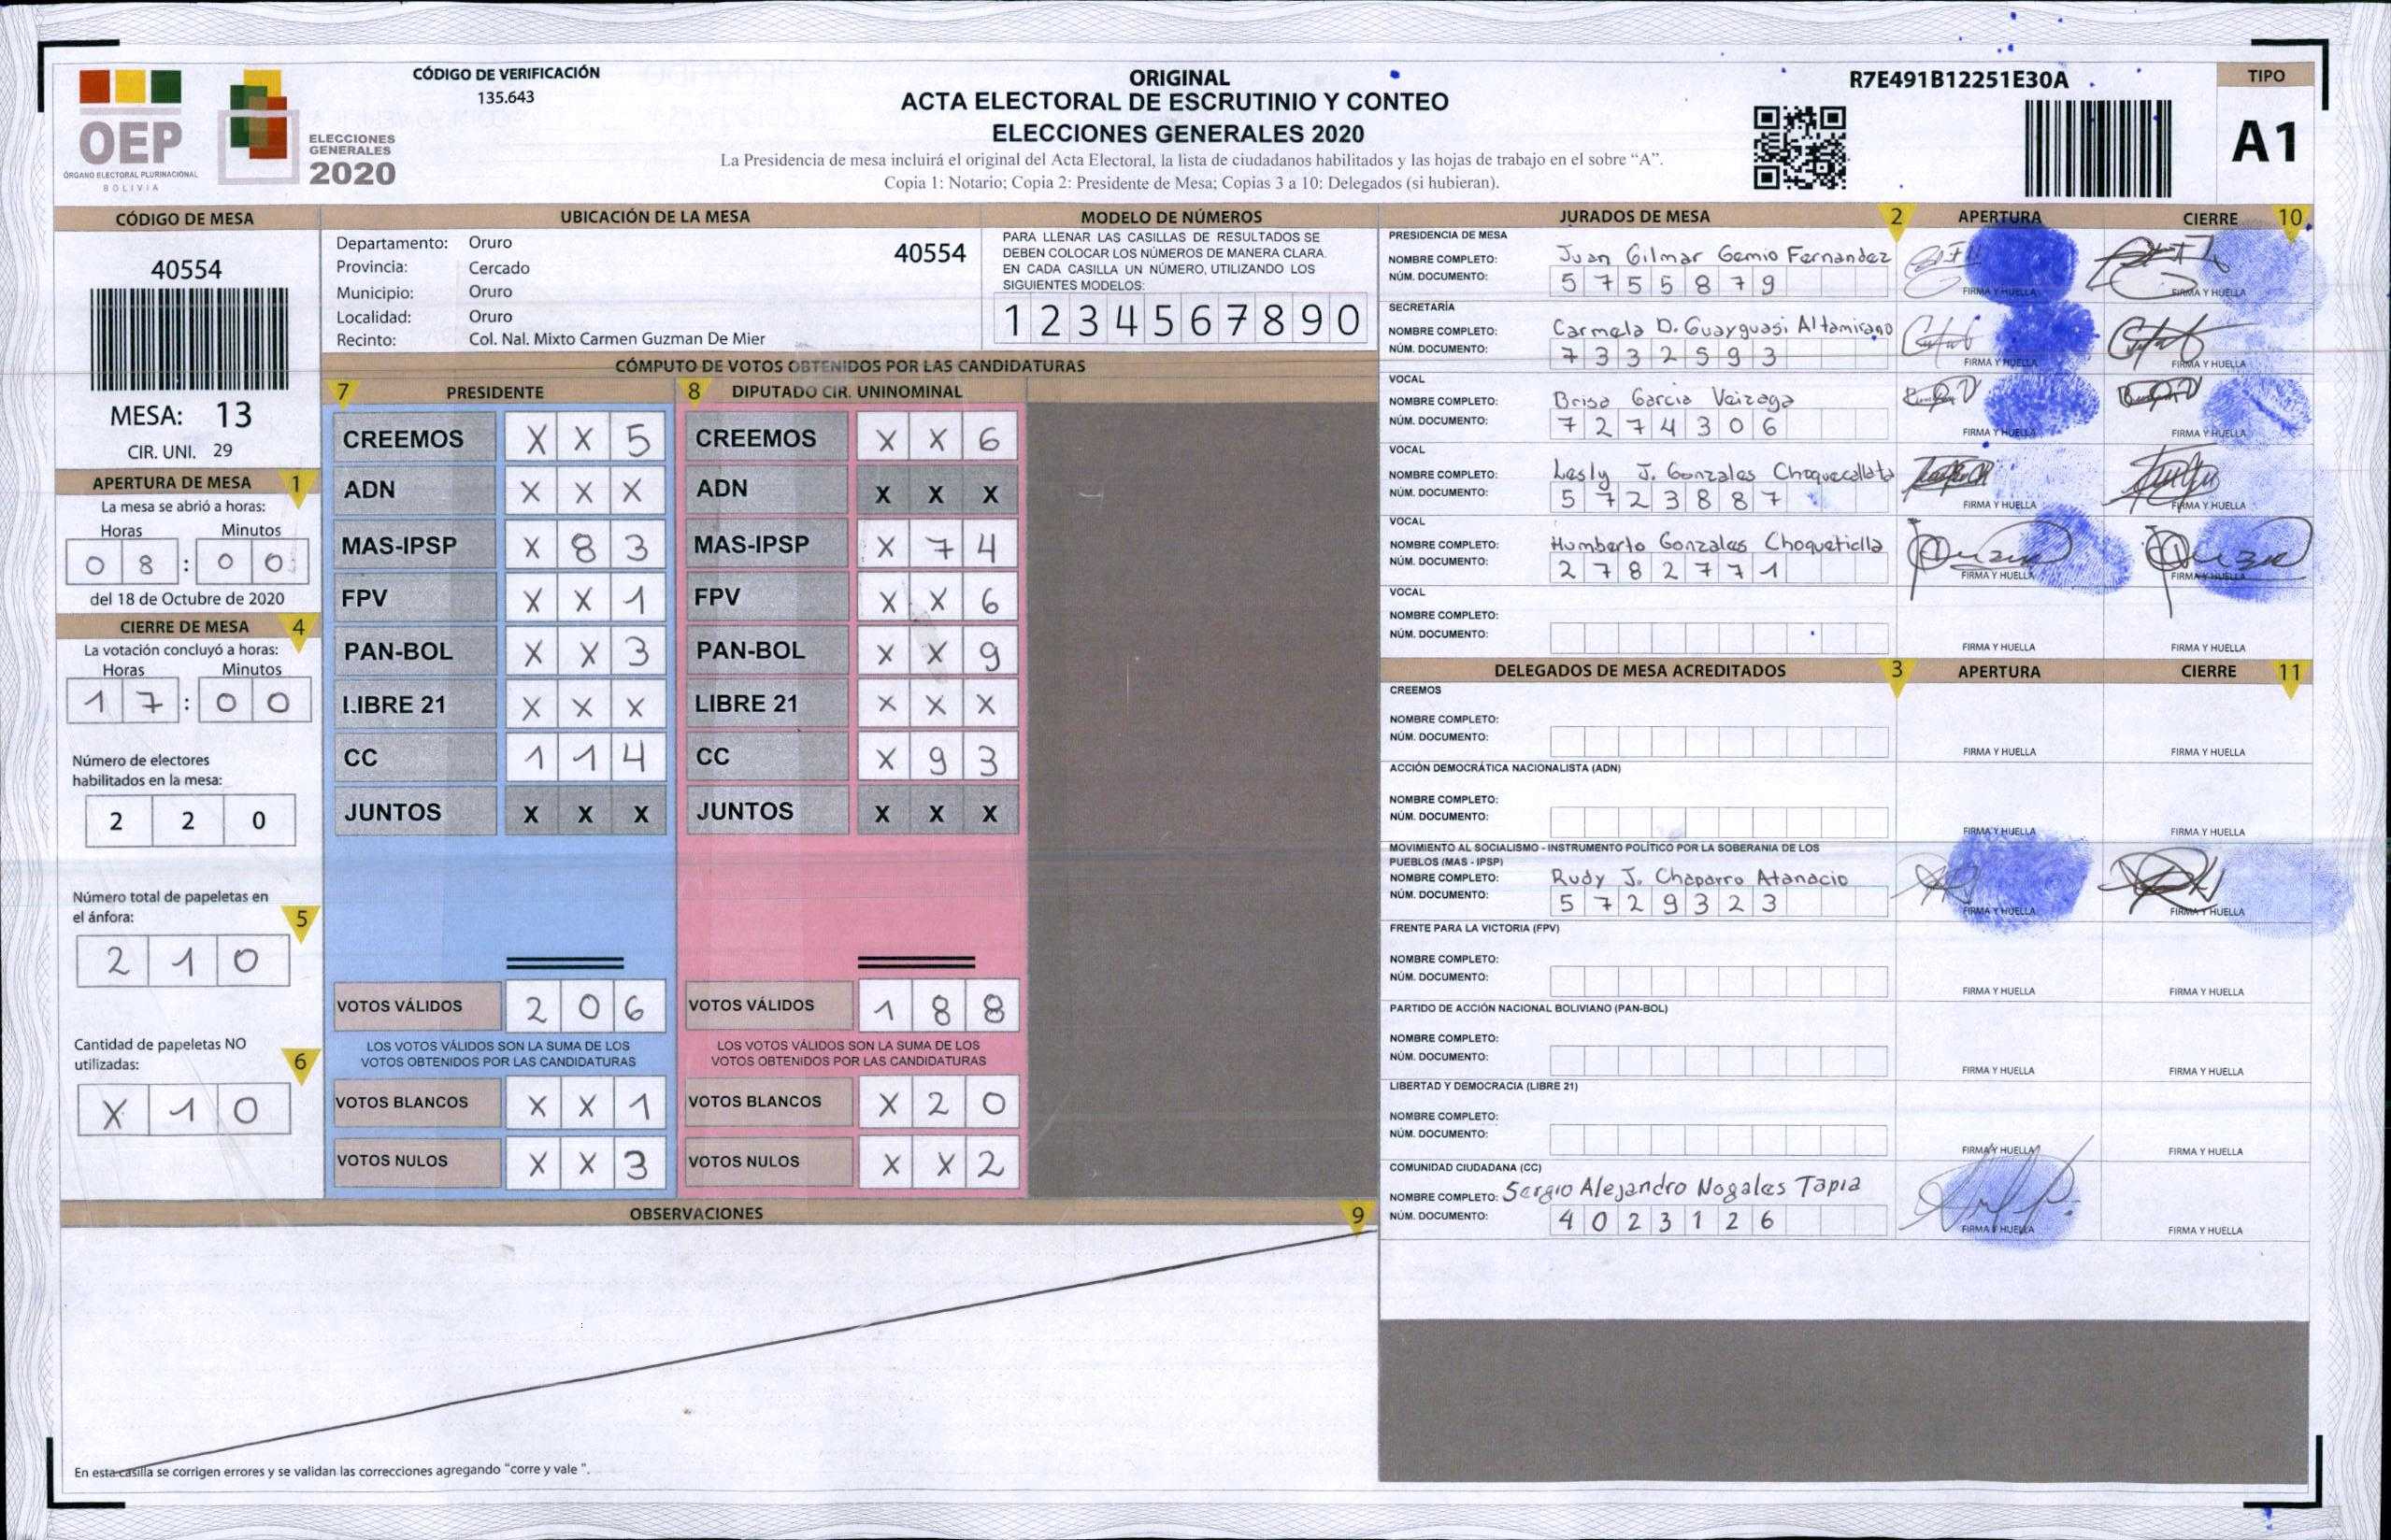 CÓDIGO DE VERIFICACIÓN
135.643
OEP
ÓRGANO ELECTORAL PLURINACIONAL
BOLIVIA
ELECCIONES
GENERALES
2020
ORIGINAL
ACTA ELECTORAL DE ESCRUTINIO Y CONTEO
ELECCIONES GENERALES 2020
La Presidencia de mesa incluirá el original del Acta Electoral, la lista de ciudadanos habilitados y las hojas de trabajo en el sobre “A”.
Copia 1: Notario; Copia 2: Presidente de Mesa; Copias 3 a 10: Delegados (si hubieran).
R7E491B12251E30A
TIPO
A1
CÓDIGO DE MESA
40554
MESA: 13
CIR. UNI. 29
APERTURA DE MESA 1
La mesa se abrió a horas:
Horas Minutos
0 8 : 0 0
del 18 de Octubre de 2020
CIERRE DE MESA 4
La votación concluyó a horas:
Horas Minutos
1 7 : 0 0
Número de electores
habilitados en la mesa:
2 2 0
Número total de papeletas en
el ánfora: 5
2 1 0
Cantidad de papeletas NO
utilizadas: 6
X 1 0
UBICACIÓN DE LA MESA
Departamento: Oruro
40554
Provincia: Cercado
Municipio: Oruro
Localidad: Oruro
Recinto: Col. Nal. Mixto Carmen Guzman De Mier
MODELO DE NÚMEROS
PARA LLENAR LAS CASILLAS DE RESULTADOS SE
DEBEN COLOCAR LOS NÚMEROS DE MANERA CLARA.
EN CADA CASILLA UN NÚMERO, UTILIZANDO LOS
SIGUIENTES MODELOS:
1 2 3 4 5 6 7 8 9 0
CÓMPUTO DE VOTOS OBTENIDOS POR LAS CANDIDATURAS
7 PRESIDENTE
CREEMOS X X 5
ADN X X X
MAS-IPSP X 8 3
FPV X X 1
PAN-BOL X X 3
LIBRE 21 X X X
CC 1 1 4
JUNTOS X X X
VOTOS VÁLIDOS 2 0 6
LOS VOTOS VÁLIDOS SON LA SUMA DE LOS
VOTOS OBTENIDOS POR LAS CANDIDATURAS
VOTOS BLANCOS X X 1
VOTOS NULOS X X 3
8 DIPUTADO CIR. UNINOMINAL
CREEMOS X X 6
ADN X X X
MAS-IPSP X 7 4
FPV X X 6
PAN-BOL X X 9
LIBRE 21 X X X
CC X 9 3
JUNTOS X X X
VOTOS VÁLIDOS 1 8 8
LOS VOTOS VÁLIDOS SON LA SUMA DE LOS
VOTOS OBTENIDOS POR LAS CANDIDATURAS
VOTOS BLANCOS X 2 0
VOTOS NULOS X X 2
OBSERVACIONES 9
En esta casilla se corrigen errores y se validan las correcciones agregando “corre y vale ”.
JURADOS DE MESA 2 APERTURA CIERRE 10
PRESIDENCIA DE MESA
NOMBRE COMPLETO: Juan Gilmar Gemio Fernandez
NÚM. DOCUMENTO: 5 7 5 5 8 7 9
FIRMA Y HUELLA FIRMA Y HUELLA
SECRETARÍA
NOMBRE COMPLETO: Carmela D. Guayguasi Altamirano
NÚM. DOCUMENTO: 7 3 3 2 5 9 3
FIRMA Y HUELLA FIRMA Y HUELLA
VOCAL
NOMBRE COMPLETO: Brisa Garcia Veizaga
NÚM. DOCUMENTO: 7 2 7 4 3 0 6
FIRMA Y HUELLA FIRMA Y HUELLA
VOCAL
NOMBRE COMPLETO: Lesly J. Gonzales Choquecallata
NÚM. DOCUMENTO: 5 7 2 3 8 8 7
FIRMA Y HUELLA FIRMA Y HUELLA
VOCAL
NOMBRE COMPLETO: Humberto Gonzales Choqueticlla
NÚM. DOCUMENTO: 2 7 8 2 7 7 1
FIRMA Y HUELLA FIRMA Y HUELLA
VOCAL
NOMBRE COMPLETO:
NÚM. DOCUMENTO:
FIRMA Y HUELLA FIRMA Y HUELLA
DELEGADOS DE MESA ACREDITADOS 3 APERTURA CIERRE 11
CREEMOS
NOMBRE COMPLETO:
NÚM. DOCUMENTO:
FIRMA Y HUELLA FIRMA Y HUELLA
ACCIÓN DEMOCRÁTICA NACIONALISTA (ADN)
NOMBRE COMPLETO:
NÚM. DOCUMENTO:
FIRMA Y HUELLA FIRMA Y HUELLA
MOVIMIENTO AL SOCIALISMO - INSTRUMENTO POLÍTICO POR LA SOBERANIA DE LOS
PUEBLOS (MAS - IPSP)
NOMBRE COMPLETO: Rudy J. Chaparro Atanacio
NÚM. DOCUMENTO: 5 7 2 9 3 2 3
FIRMA Y HUELLA FIRMA Y HUELLA
FRENTE PARA LA VICTORIA (FPV)
NOMBRE COMPLETO:
NÚM. DOCUMENTO:
FIRMA Y HUELLA FIRMA Y HUELLA
PARTIDO DE ACCIÓN NACIONAL BOLIVIANO (PAN-BOL)
NOMBRE COMPLETO:
NÚM. DOCUMENTO:
FIRMA Y HUELLA FIRMA Y HUELLA
LIBERTAD Y DEMOCRACIA (LIBRE 21)
NOMBRE COMPLETO:
NÚM. DOCUMENTO:
FIRMA Y HUELLA FIRMA Y HUELLA
COMUNIDAD CIUDADANA (CC)
NOMBRE COMPLETO: Sergio Alejandro Nogales Tapia
NÚM. DOCUMENTO: 4 0 2 3 1 2 6
FIRMA Y HUELLA FIRMA Y HUELLA